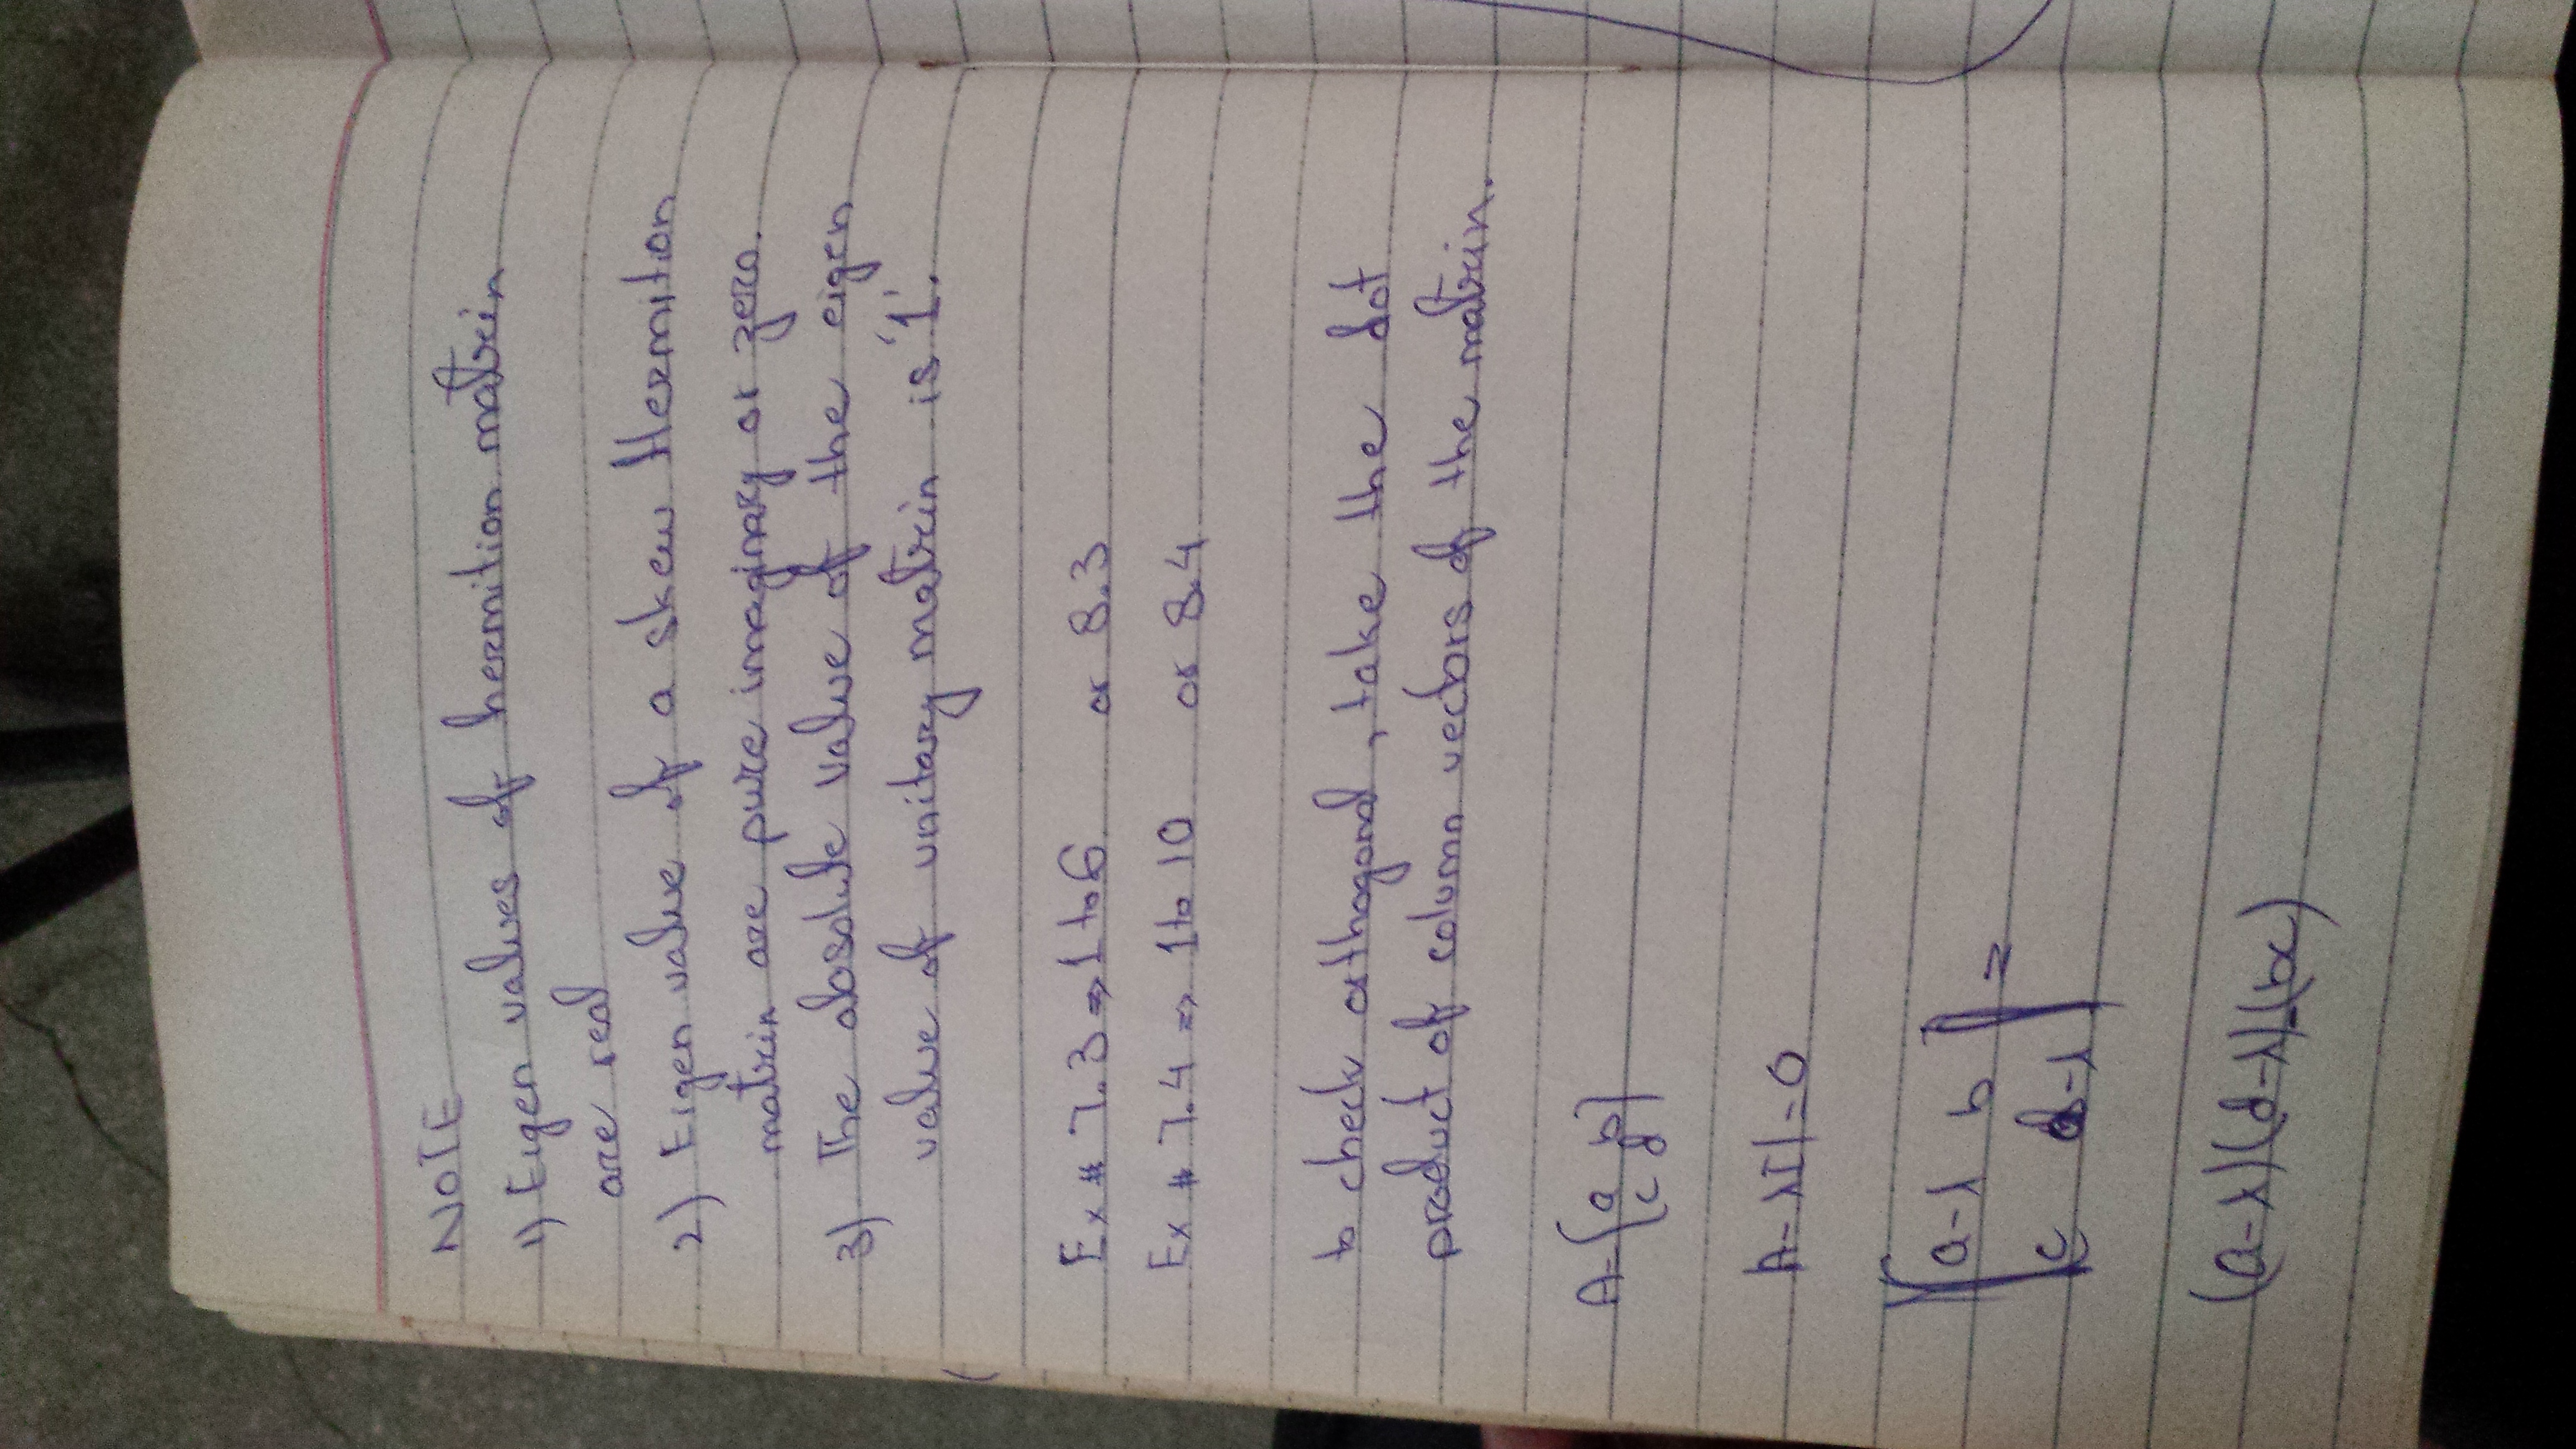 NOTE
1) Eigen values of hermition matrix
are real
2) Eigen value of a skew Hermition
matrix are pure imaginary or zero.
3) The absolute value of the eigen
value of unitary matrix is '1'.
Ex # 7.3 => 1 to 6 or 8.3
Ex # 7.4 => 1 to 10 or 8.4
to check orthogonal, take the dot
product of column vectors of the matrix.
A=[a b
c d]
A-λI|=0
[a-λ b
c d-λ] =
(a-λ)(d-λ)(-bc)